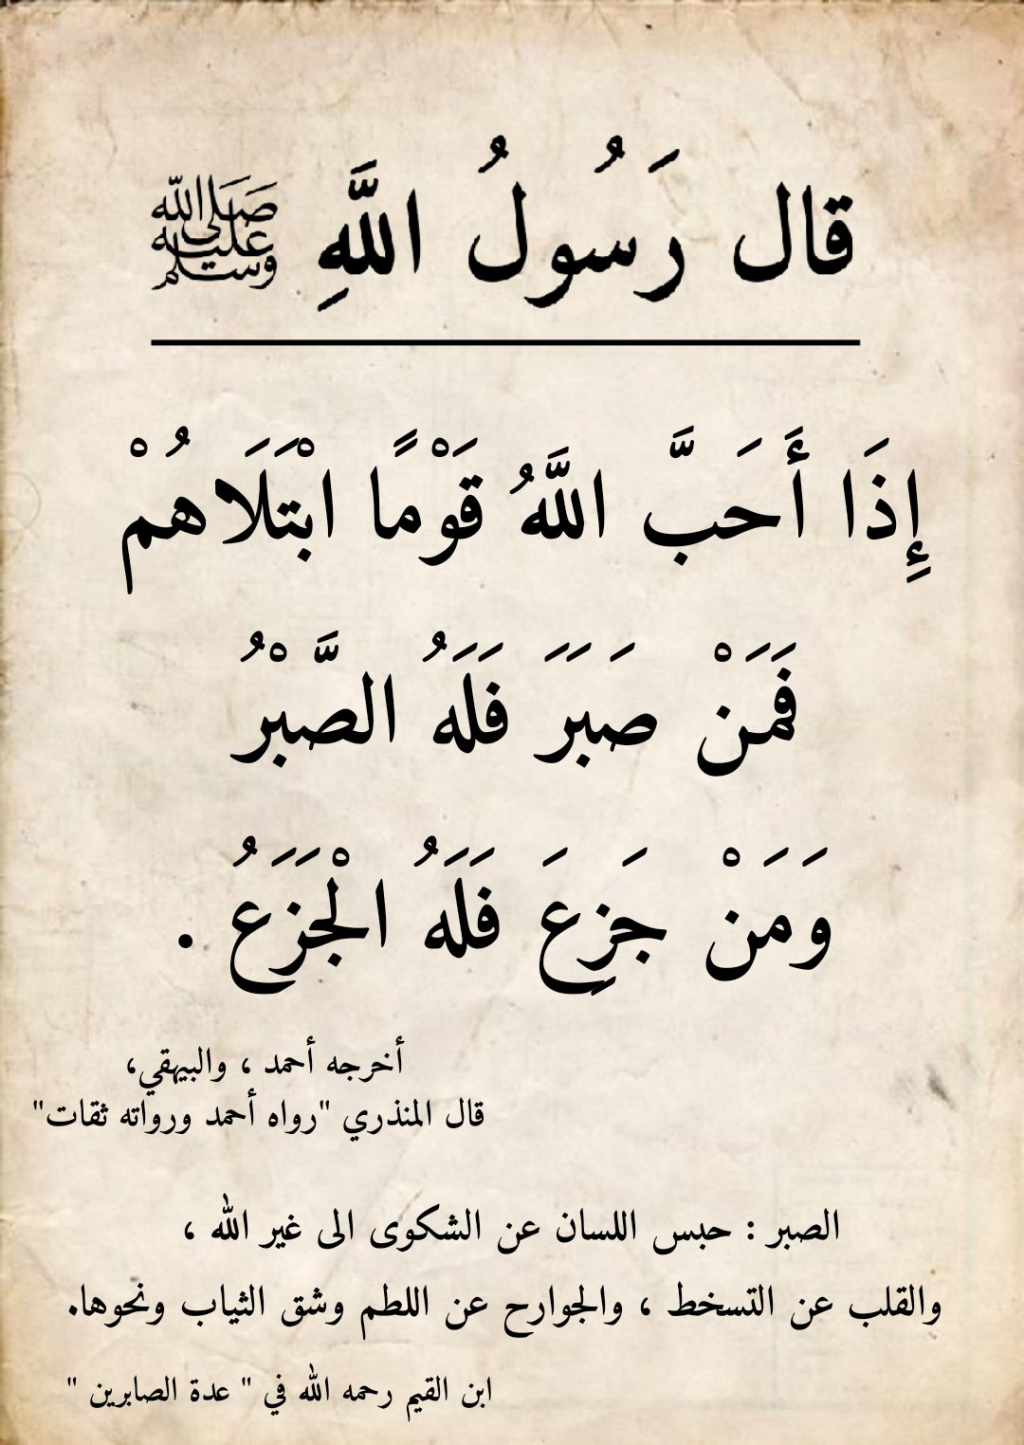 قال رَسُولُ اللَّهِ ﷺ
إِذَا أَحَبَّ اللَّهُ قَوْمًا ابْتَلَاهُمْ
فَمَنْ صَبَرَ فَلَهُ الصَّبْرُ
وَمَنْ جَزِعَ فَلَهُ الْجَزَعُ .
أخرجه أحمد ، والبيهقي،
قال المنذري "رواه أحمد ورواته ثقات"
الصبر : حبس اللسان عن الشكوى الى غير الله ،
والقلب عن التسخط ، والجوارح عن اللطم وشق الثياب ونحوها.
ابن القيم رحمه الله في " عدة الصابرين "